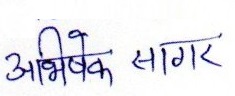 अभिषेक सागर